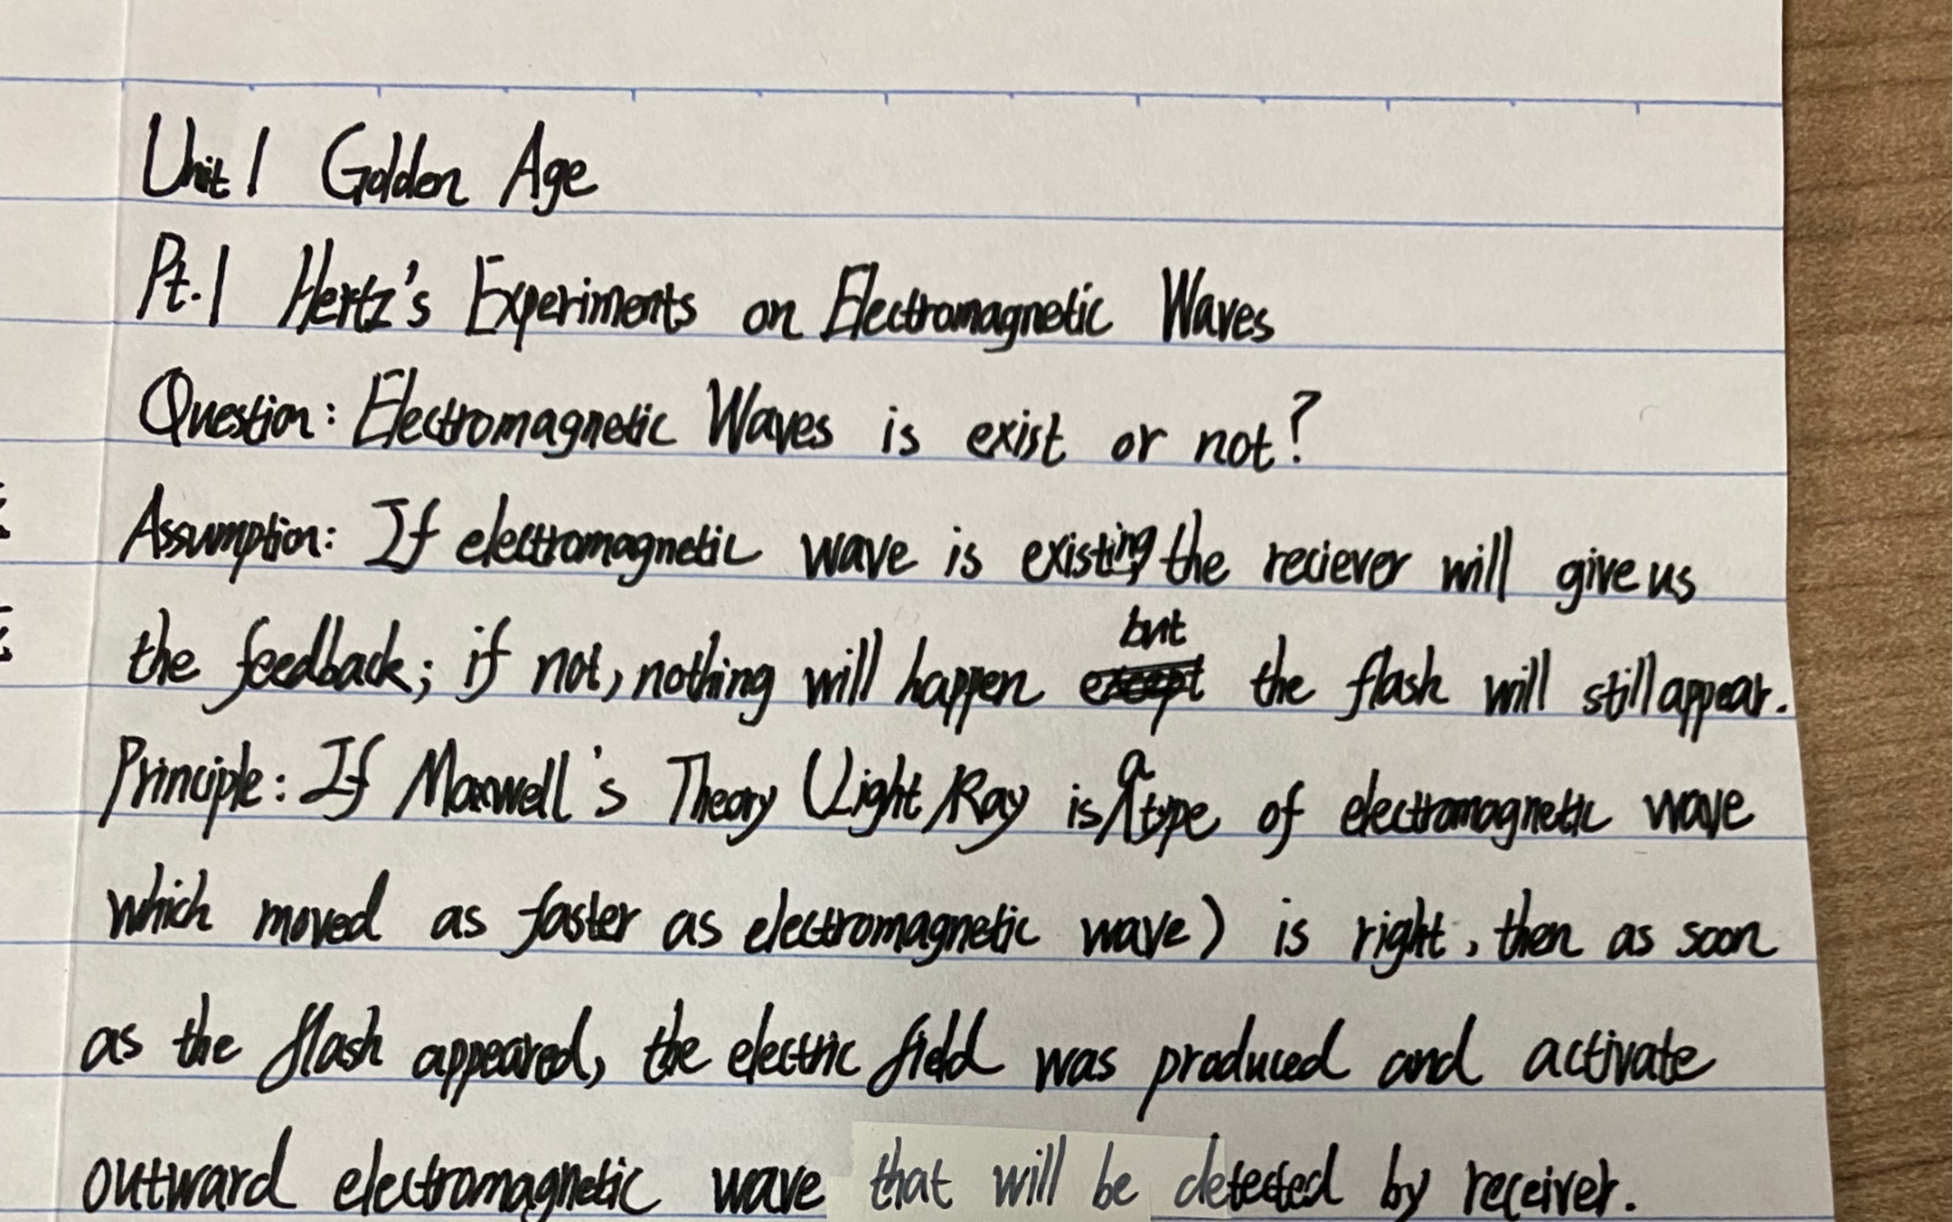 Unit 1 Golden Age
Pt.1 Hertz's Experiments on Electromagnetic Waves
Question: Electromagnetic Waves is exist or not?
Assumption: If electromagnetic wave is existing, the reciever will give us
the feedback; if not, nothing will happen but the flash will still appear.
Principle: If Maxwell's Theory (Light Ray is a type of electromagnetic wave
which moved as faster as electromagnetic wave) is right, then as soon
as the flash appeared, the electric field was produced and activate
outward electromagnetic wave that will be detected by receiver.